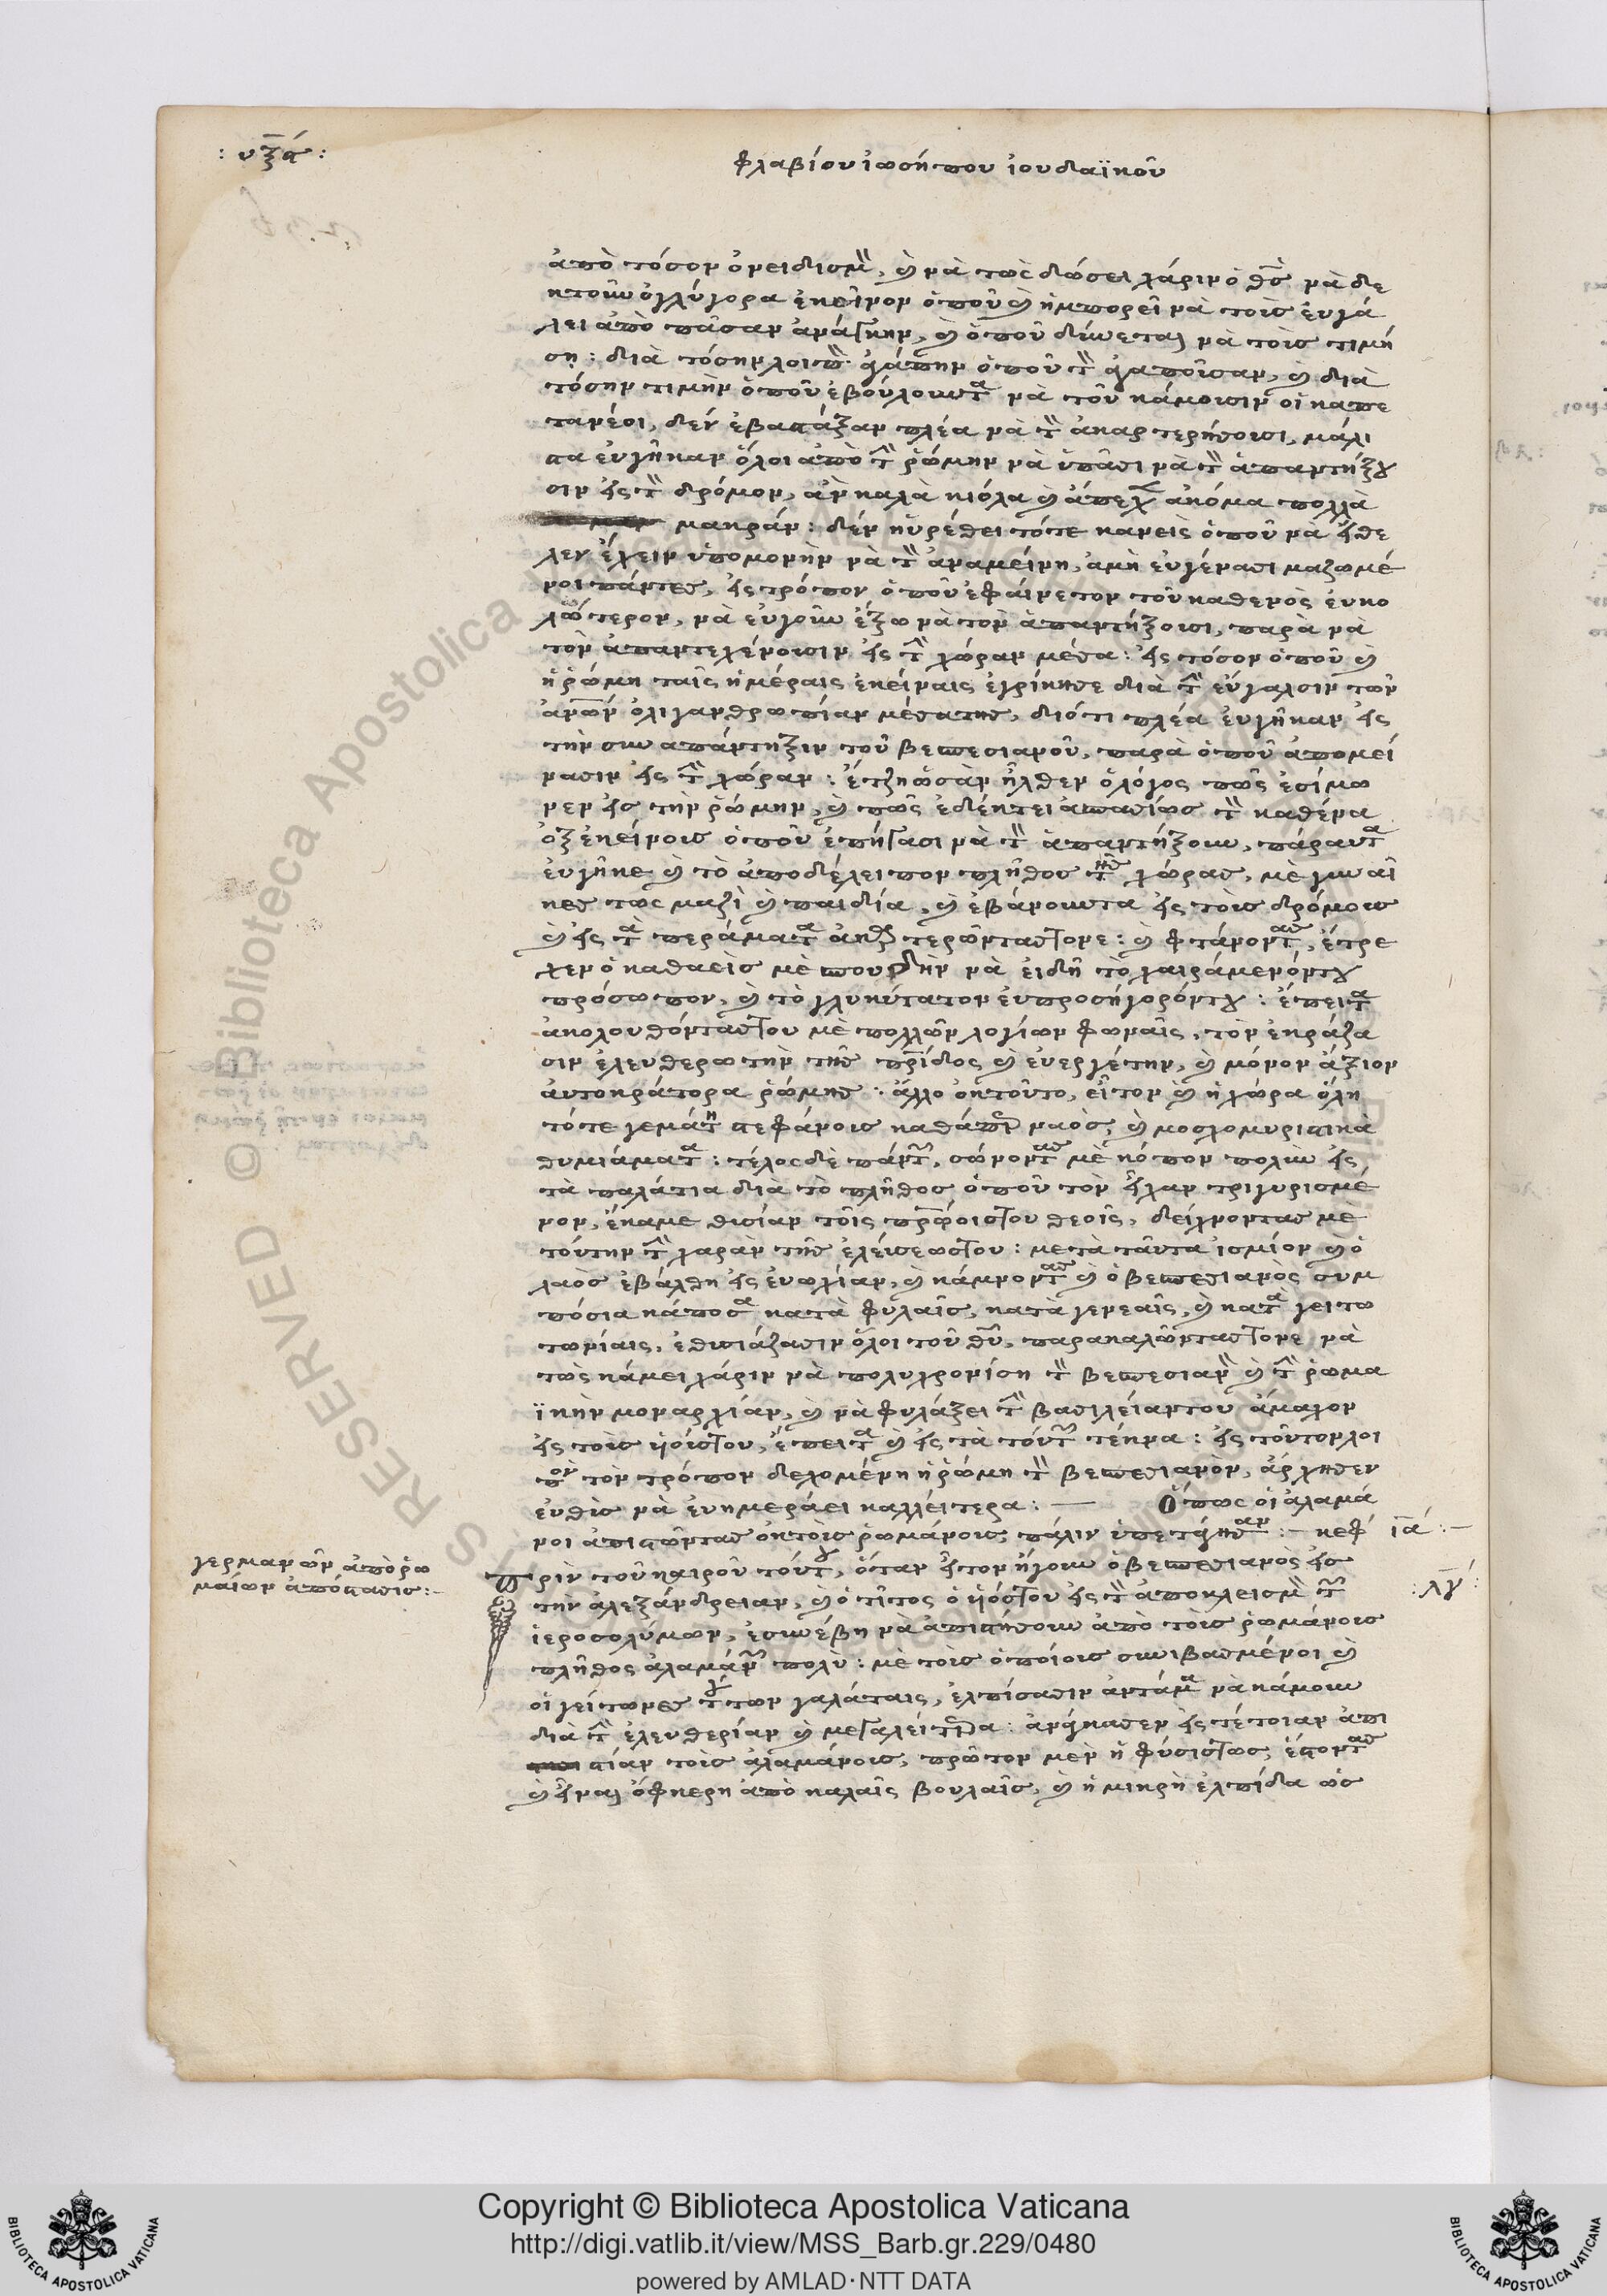 : υξα :
φλαβίου ἰωσήπου ἰουδαϊκοῦ
ἀπὸ τόσον ὀνειδισμὸν, καὶ νὰ τως δώσει χάριν ὁ θεὸς νὰ δε
χτοῦν ὀγλύγορα ἐκεῖνον ὁποῦ καὶ ἠμπορεῖ νὰ τοὺς ἐυγά
λει ἀπὸ πᾶσαν ἀνάγκην, καὶ ὁποῦ δύνεται νὰ τοὺς τιμή
ση : διὰ τόσην λοιπὸν ἀγάπην ὁποῦ τὸν ἀγαποῦσαν, καὶ διὰ
τόσην τιμὴν ὁποῦ ἐβούλουντα νὰ τοῦ κάμουσιν οἱ καπε
τανέοι, δέν ἐβαστάξαν πλέα νὰ τὸν ἀκαρτερήσουσι, μάλι
στα ἐυγῆκαν ὅλοι ἀπὸ τὴν ῥώμην νὰ ὑπᾶσι νὰ τὸν ἀπαντήξου
σιν εἰς τὸν δρόμον, ἂν καλὰ κιόλα καὶ ἄπεχεν ἀκόμα πολλὰ
μακράν : δέν ηὑρέθει τότε κανεὶς ὁποῦ νὰ εἴθε
λεν ἔχειν ὑπομονὴν νὰ τὸν ἀναμείνη, ἀμὴ ἐυγένασι μαζωμέ
νοι πάντες, εἰς τρόπον ὁποῦ ἐφαίνετον τοῦ καθενὸς ἐυκο
λώτερον, νὰ ἐυγοῦν ἔξω νὰ τὸν ἀπαντήξουσι, παρὰ νὰ
τὸν ἀπαντεχένουσιν εἰς τὴν χώραν μέσα : εἰς τόσον ὁποῦ καὶ
ἡ ῥώμη ταῖς ἡμέραις ἐκείναις ἐγρίκησε διὰ τὴν εὔγαλσιν τῶν
ἀνθρώπων ὀλιγανθρωπίαν μέσα της, διότι πλέα ἐυγῆκαν εἰς
τὴν συναπάντηξιν τοῦ βεσπεσιανοῦ, παρὰ ὁποῦ ἀπομεί
νασιν εἰς τὴν χώραν : ἔτζη ὡσὰν ἦλθεν ὁ λόγος πῶς ἐσίμω
νεν εἰς τὴν ῥώμην, καὶ πῶς ἐδέχτει ἀσπασίως τὸν καθένα
ὀξ ἐκείνους ὁποῦ ἐπήγασι νὰ τὸν ἀπαντήξουν, πάραυτα
ἐυγῆκε καὶ τὸ ἀποδέλειπον πλῆθος τῆς χώρας, μὲ γυναῖ
κες τως μαζὶ καὶ παιδία, καὶ ἐβάνουντα εἰς τοὺς δρόμους
καὶ εἰς τὰ περάματα ἀκαρτερῶντας τονε : καὶ φτάνοντας, ἔτρε
χεν ὁ καθαεὶς μὲ σπουδὴν νὰ εἰδῆ τὸ χαιράμενόν του
πρόσωπον, καὶ τὸ γλυκύτατον ἐυπροσήγορόν του : ἔπειτα
ἀκολουθόντας του μὲ πολλῶν λογίων φωναῖς, τὸν ἐκράζα
σιν ἐλευθερωτὴν τῆς πατρίδος καὶ ἐυεργέτην, καὶ μόνον ἄξιον
ἀυτοκράτορα ῥώμης : ἄλλο ὀκ τοῦτο, εἶτον καὶ ἡ χώρα ὅλη
τότε γεμάτη στεφάνους καθάπερ ναὸς, καὶ μοσχομυριστικὰ
θυμιάματα : τέλος δὲ πάντων, σώνοντας μὲ κόπον πολὺν εἰς
τὰ παλάτια διὰ τὸ πλῆθος ὁποῦ τὸν εἴχαν τριγυρισμέ
νον, ἔκαμε θυσίαν τοῖς πατρῴοις του θεοῖς, δείχνοντας μὲ
τούτην τὴν χαρὰν τῆς ἐλεύσεώς του : μετὰ ταῦτα ἰσμίον καὶ ὁ
λαὸς ἐβάλθη εἰς ἐυωχίαν, καὶ κάμνοντας καὶ ὁ βεσπεσιανὸς συμ
πόσια κάποσα κατὰ φυλαῖς, κατὰ γενεαῖς, καὶ κατὰ γειτω
τωνίαις, ἐθυσιάζασιν ὅλοι τοῦ θεοῦ, παρακαλῶντας τονε νὰ
τὼς κάμει χάριν νὰ πολυχρονίση τὸν βεσπεσιανὸν καὶ τὴν ῥωμα
ϊκὴν μοναρχίαν, καὶ νὰ φυλάξει τὴν βασιλείαν του ἄμαχον
εἰς τοὺς ὑιούς του, ἔπειτα καὶ εἰς τὰ τούτων τέκνα : εἰς τοῦτον λοι
πὸν τὸν τρόπον δεχομένη ἡ ῥώμη τὸν βεσπεσιανὸν, ἄρχησεν
ἐυθὺς νὰ ἐυημεράει καλλείτερα : — Ὅπως οἱ ἀλαμά
νοι ἀπιστῶντας ὀκ τοὺς ῥωμάνους, πάλιν ὑπετάχησαν : — κεφ ια : —
γερμανῶν ἀπὸ ῥω
μαίων ἀπόστασις : —
Πρὶν τοῦ καιροῦ τούτου, ὅταν εἶτον ἤγουν ὁ βεσπεσιανὸς εἰς
: λγ :
τὴν ἀλεξάνδρειαν, καὶ ὁ τίτος ὁ ὑιός του εἰς τὸν ἀποκλεισμὸν τῶν
ἱεροσολύμων, ἐσυνέβη νὰ ἀπιστήσουν ἀπὸ τοὺς ῥωμάνους
πλῆθος ἀλαμάνων πολὺ : μὲ τοὺς ὁποίους συνιβασμένοι καὶ
οἱ γείτονες τούτων γαλάταις, ἐλπίσασιν ἀντάμα νὰ κάμουν
διὰ τὴν ἐλευθερίαν καὶ μεγαλείτερα : ἀνάγκασεν εἰς τέτοιαν ἀπι
στίαν τοὺς ἀλαμάνους, πρῶτον μὲν ἡ φύσις τως, ἔστοντας
καὶ εἶναι ὄφκερη ἀπὸ καλαῖς βουλαῖς, καὶ ἡ μικρὴ ἐλπίδα ὡς
Copyright © Biblioteca Apostolica Vaticana
http://digi.vatlib.it/view/MSS_Barb.gr.229/0480
powered by AMLAD·NTT DATA